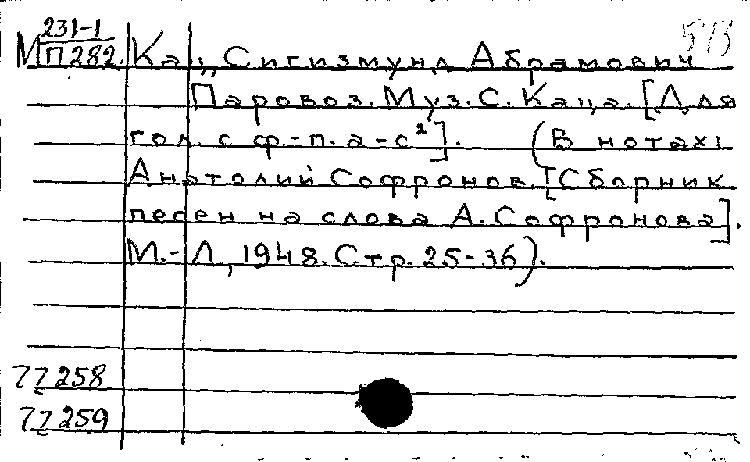 231-1
М П282. Кац, Сигизмунд Абрамович
Паровоз. Муз. С. Каца. [Для
гол. с ф-п. a-c²]. (В нотах:
Анатолий Софронов. [Сборник
песен на слова А. Софронова].
М.-Л., 1948. Стр. 25-36).
77258
77259